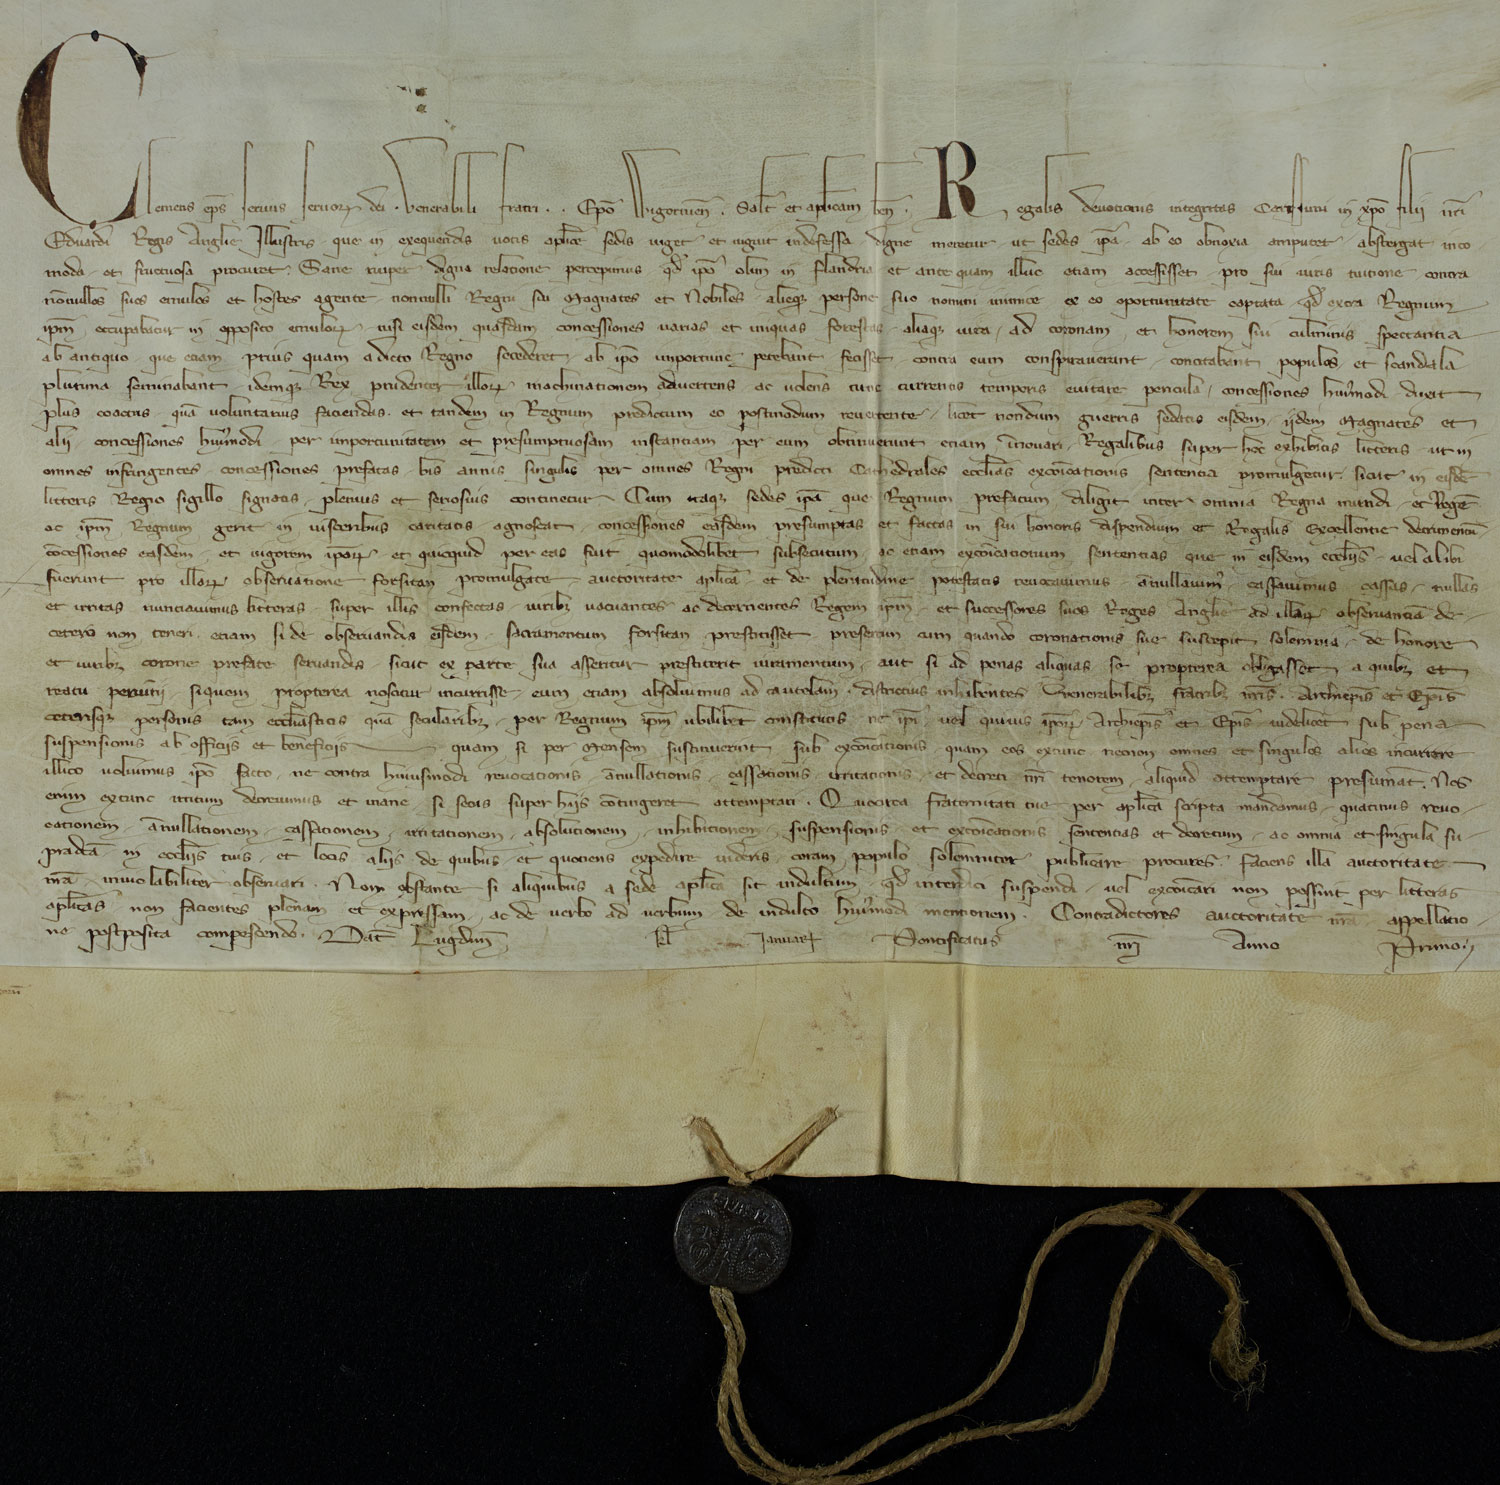 Clemens ep̄s servus servoꝝ dei . Venerabili fratri . . Ep̄o Wigornien̄ . Salt̄ et ap̄licam ben̄ . Regalis devotionis integritas Carissimi in xp̄o filii nr̄i
Edwardi Regis Anglie Illustris . que in exequendis votis ap̄lice sedis viget et viguit indefessa . digne meretur ut sedes ip̄a . ab eo obnoxia amputet . abstergat inco
moda . et fructuosa procuret . Sane nuper digna relatione percepimus . qd̄ ip̄o olim in Flandria et ante quam illuc etiam accessisset . pro sui iuris tuitione contra
nōnullos suos emulos et hostes agente nonnulli Regni sui Magnates et Nobiles . alieqꝫ persone suo nomini inimice ex eo oportunitate captata . qd̄ extra Regnum
ip̄m . occupabatur in opposito emuloꝝ . nisi eisdem quasdam concessiones varias et iniquas forestas . aliaqꝫ iura . ad coronam . et honorem sui culminis spectantia
ab antiquo . que etiam . prius quam a dicto Regno secederet . ab ip̄o importune petebant fecisset contra eum conspiraverant . concitabant populos . et scandala
plurima seminabant . idemqꝫ Rex prudenter illoꝝ machinationem advertens ac volens tunc currentis temporis evitare pericula . concessiones huiꝰmodi . duxit
plus coactus . quā voluntarius faciendas . et tandem in Regnum predictum eo postmodum revertente . licet nondum guerris sedatis eisdem . iidem Magnates et
alii concessiones huiꝰmodi . per importunitatem et presumptuosam instantiam . per eum obtinuerunt etiam īnovari . Regalibus super hoc exhibitis litteris . ut in
omnes infringentes . concessiones prefatas . bis annis singulis per omnes Regni predicti Cathedrales eccl̄ias excōicationis sententia promulgetur . sicut in eisdē
litteris Regio sigillo signatis . plenius et seriosius continetur . Cum itaqꝫ sedes ip̄a que Regnum prefatum diligit inter omnia Regna mundi . et Regē
ac ip̄m Regnum gerit in visceribus caritatis . agnoscat . concessiones easdem presumptas et factas in sui honoris dispendium et Regalis Excellentie detrimentū
cōcessiones easdem . et vigorem ip̄aꝝ . et quicquid per eas fuit quomodolibet subsecutum . ac etiam excōicationum sententias que in eisdem eccl̄iis . vel alibi
fuerunt pro illaꝝ observatione forsitan promulgate auctoritate ap̄lica . et de plenitudine potestatis revocavimus . ānullavimꝰ . cassavimus . cassas . nullas
et irritas nunciavimus litteras . super illis confectas . viribꝫ vacuantes . ac decernentes Regem ip̄m . et successores suos Reges Anglie ad illaꝝ observantiā de
cetero non teneri . etiam si de observandis eisdem . sacramentum forsitan prestitisset presertim cum quando coronationis sue suscepit solemnia . de honore
et iuribꝫ corone prefate servandis . sicut ex parte sua asseritur prestiterit iuramentum . aut si ad penas aliquas se propterea obligasset a quibꝫ et
reatu periurii . siquem propterea noscitur incurrisse . eum etiam absolvimus ad cautelam . districtius inhibentes Venerabilibꝫ fratribꝫ nr̄is . Archiep̄is et Ep̄is
ceterisqꝫ personis tam eccl̄iasticis quā secularibꝫ . per Regnum ip̄m ubilibet constitutis . ne ip̄i vel quivis ip̄oꝝ Archiep̄is et Ep̄is videlicet sub pena
suspensionis ab officiis et beneficiis quam si per Mensem sustinuerint sub excōicationis . quam eos extunc necnon omnes et singulos alios incurrere
illico volumus ip̄o facto . ne contra huiusmodi revocationis . ānullationis . cassationis . irritationis . et decreti nr̄i tenorem . aliquid attemptare presumāt . Nos
enim extunc irritum decrevimus et inane si secus super hiis cōtingeret attemptari . Quocirca fraternitati tue per ap̄lica scripta mandamus . quatinus revo
cationem . ānullationem . cassationem . irritationem . absolutionem . inhibitionem . suspensionis . et excōicationis sententias et decretum . ac omnia et singula su
pradcā . in eccl̄iis tuis . et locis aliis de quibus . et quotiens expedire videris . coram populo solemniter publicare procures . faciens illa auctoritate
nr̄a . inviolabiliter observari . Non obstante si aliquibus a sede ap̄lica sit indultum . qd̄ interdici suspendi . vel excōicari non possint per litteras
ap̄licas . non facientes plenam et expressam . ac de verbo ad verbum de indulto huiꝰmodi mentionem . Contradictores auctoritate nr̄a appellatio
ne postposita compescendo . Dat̄ Lugdun̄ kl̄ Januarꝝ Pontificatus nr̄i Anno Primo .